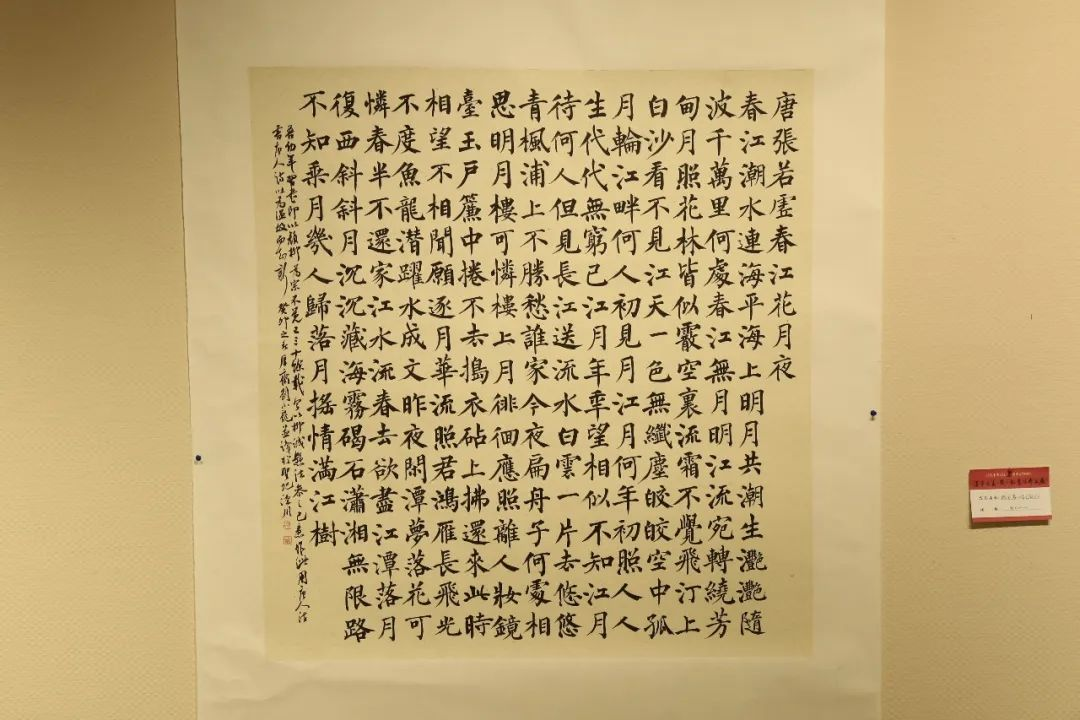 唐張若虛春江花月夜
春江潮水連海平海上明月共潮生灔灔隨
波千萬里何處春江無月明江流宛轉繞芳
甸月照花林皆似霰空裏流霜不覺飛汀上
白沙看不見江天一色無纖塵皎皎空中孤
月輪江畔何人初見月江月何年初照人人
生代代無窮已江月年年望相似不知江月
待何人但見長江送流水白雲一片去悠悠
青楓浦上不勝愁誰家今夜扁舟子何處相
思明月樓可憐樓上月徘徊應照離人妝鏡
臺玉戶簾中捲不去搗衣砧上拂還來此時
相望不相聞願逐月華流照君鴻雁長飛光
不度魚龍潛躍水成文昨夜閑潭夢落花可
憐春半不還家江水流春去欲盡江潭落月
復西斜斜月沉沉藏海霧碣石瀟湘無限路
不知乘月幾人歸落月搖情滿江樹
吾幼年學書即以顏柳為宗不覺已三十餘載今以柳誠懸法參之己意作此用唐人法
書唐人詩以為溫故而知新 癸卯之